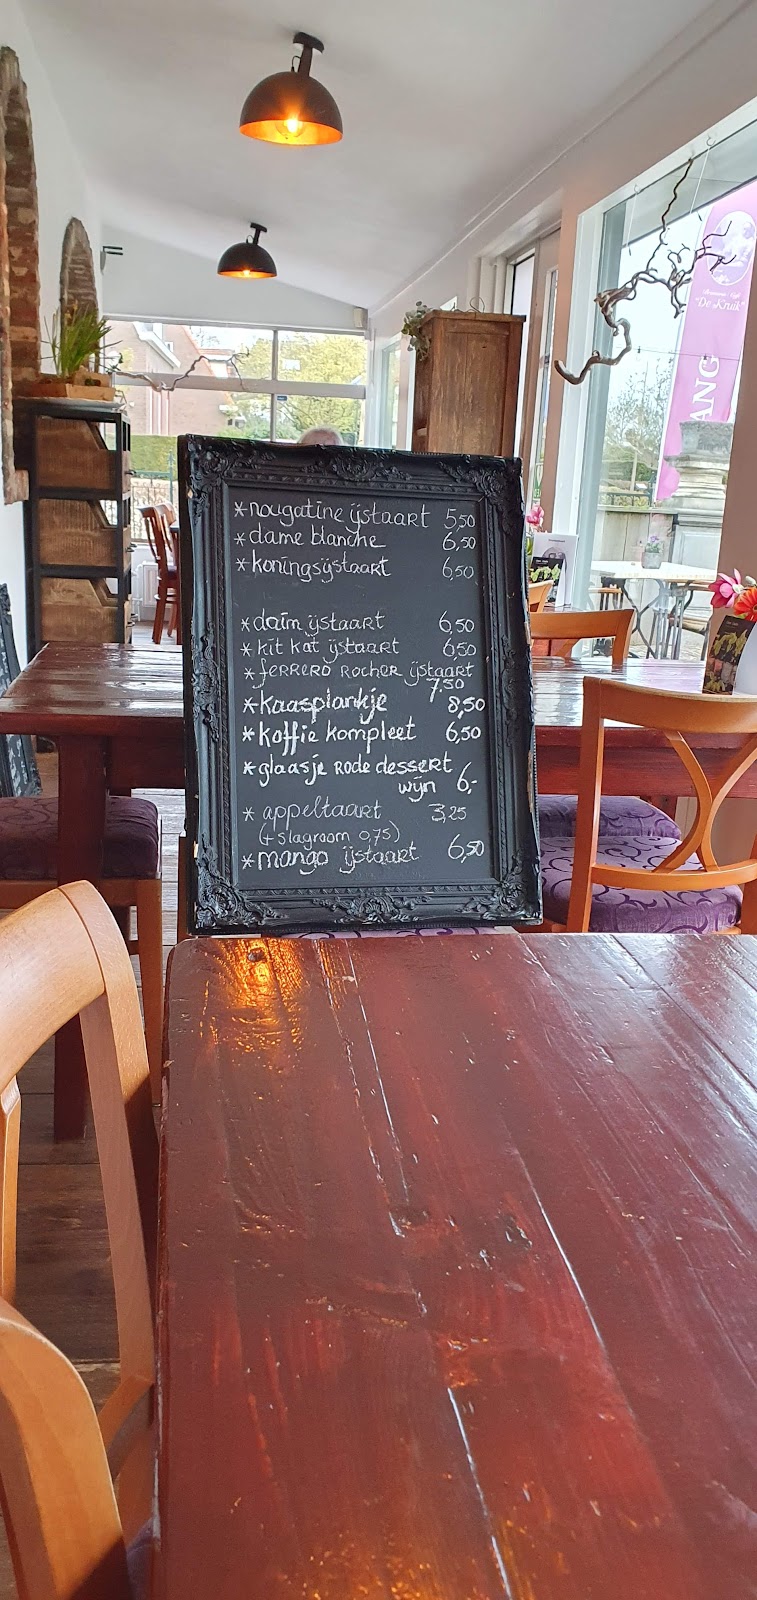 Brasserie / Café
"De Kruik"
ANG
*nougatine ijstaart 5,50
*dame blanche 6,50
*koningsijstaart 6,50
*daim ijstaart 6,50
*kit kat ijstaart 6,50
*ferrero rocher ijstaart
7,50
*kaasplankje 8,50
*koffie kompleet 6,50
*glaasje rode dessert
wijn 6,-
*appeltaart 3,25
(+ slagroom 0,75)
*mango ijstaart 6,50